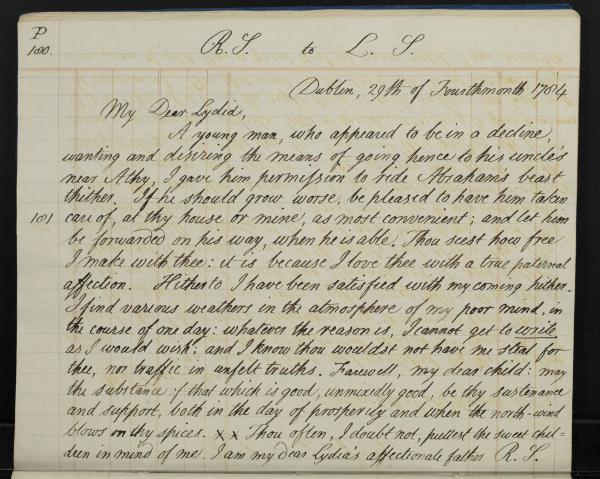 P
180.
R.S. to L. S.
Dublin, 29th of Fourthmonth 1784
My Dear Lydia,
A young man, who appeared to be in a decline,
wanting and desiring the means of going hence to his uncle's
near Athy, I gave him permission to ride Abraham's beast
thither. If he should grow worse, be pleased to have him taken
181 care of, at thy house or mine, as most convenient; and let him
be forwarded on his way, when he is able. Thou seest how free
I make with thee: it is because I love thee with a true paternal
affection. Hitherto I have been satisfied with my coming hither.
I find various weathers in the atmosphere of my poor mind, in
the course of one day: whatever the reason is, I cannot get to write
as I would wish: and I know thou wouldst not have me steal for
thee, nor traffic in unfelt truths. Farewell, my dear child: may
the substance of that which is good, unmixedly good, be thy sustenance
and support, both in the day of prosperity and when the north-wind
blows on thy spices. x x Thou often, I doubt not, puttest the sweet chil=
dren in mind of me. I am my dear Lydia's affectionate father R. S.